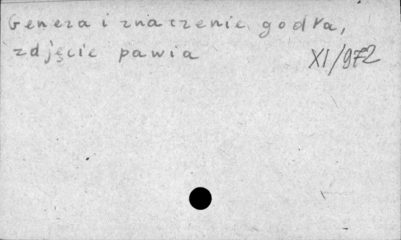 Geneza i znaczenie godła,
zdjęcie pawia
XI/972